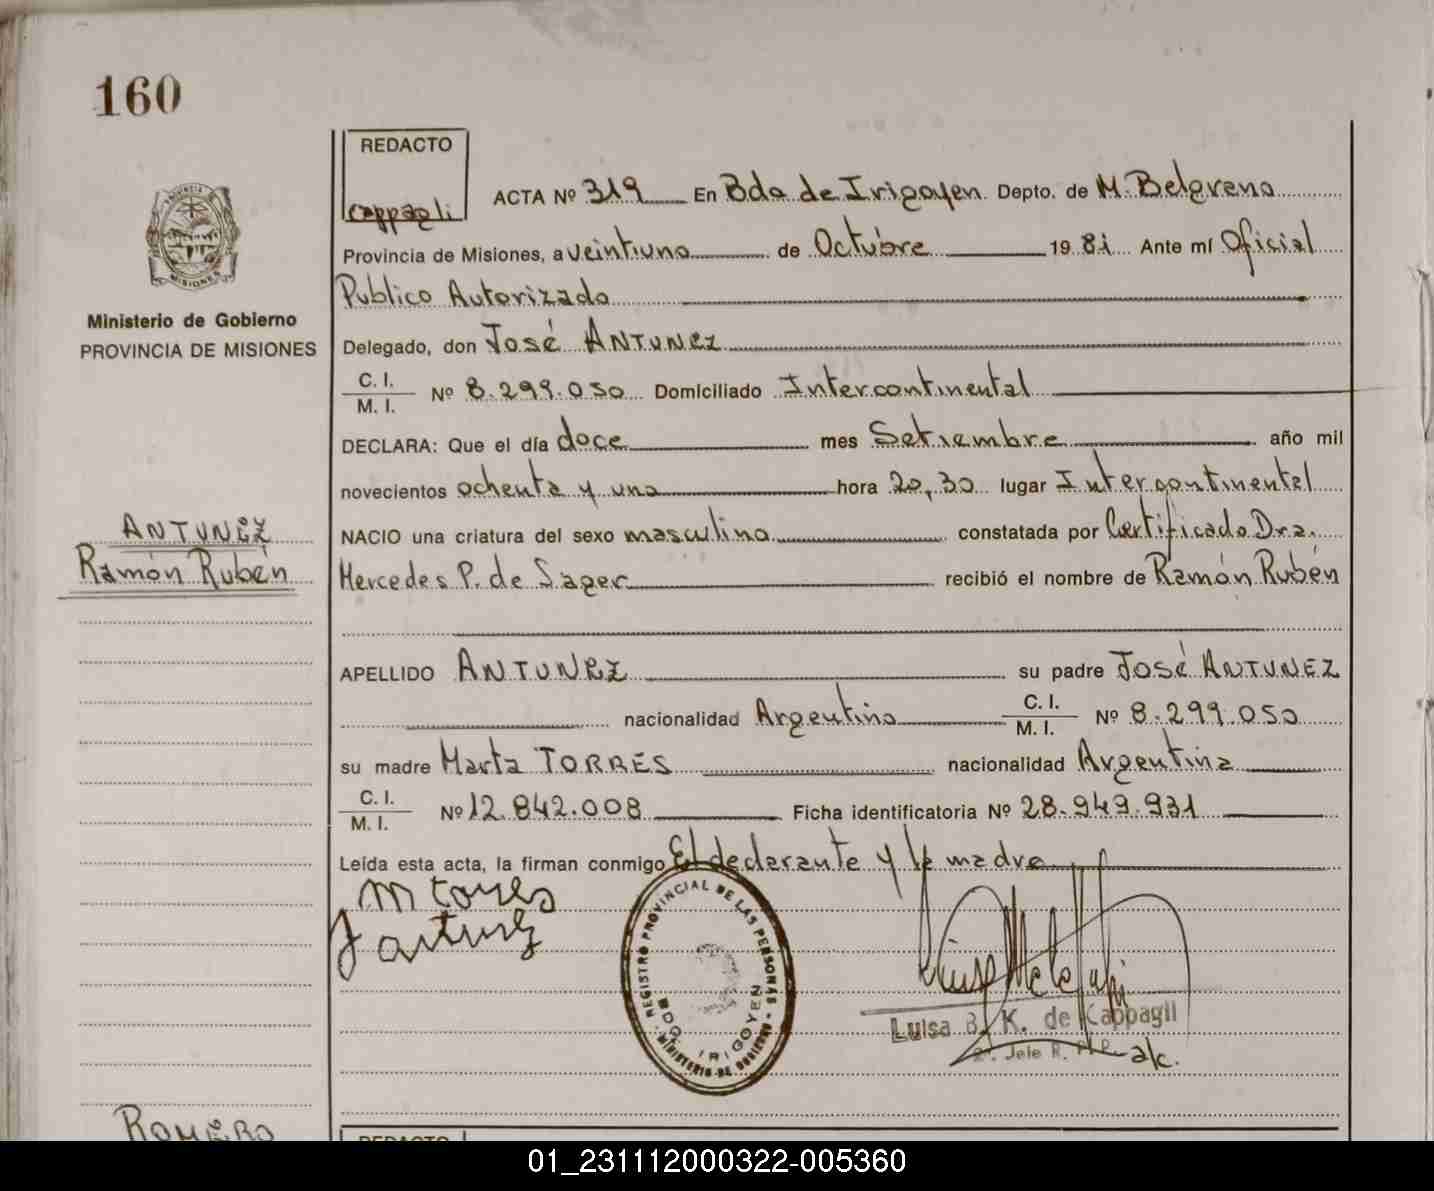 160
REDACTO
Cappagli
ACTA Nº 319 En Bdo de Irigoyen Depto. de M. Belgrano
Provincia de Misiones, a veintiuno de Octubre 1981 Ante mí Oficial
Publico Autorizado
Ministerio de Gobierno
PROVINCIA DE MISIONES
Delegado, don José ANTUNEZ
C. I.
M. I. Nº 8.299.050 Domiciliado Intercontinental
DECLARA: Que el día doce mes Setiembre año mil
novecientos ochenta y uno hora 20,30 lugar Intercontinental
ANTUNEZ
Ramón Rubén
NACIO una criatura del sexo masculino constatada por Certificado Dra.
Mercedes P. de Sager recibió el nombre de Ramón Rubén
APELLIDO ANTUNEZ su padre José ANTUNEZ
nacionalidad Argentino C. I.
M. I. Nº 8.299.050
su madre Marta TORRES nacionalidad Argentina
C. I.
M. I. Nº 12.842.008 Ficha identificatoria Nº 28.949.931
Leída esta acta, la firman conmigo El declarante y la madre
M torres
J antunez
REGISTRO PROVINCIAL DE LAS PERSONAS
MINISTERIO DE GOBIERNO
BDO. IRIGOYEN
Luisa B. K. de Cappagli
2º. Jefe R. P. P. a/c.
ROMERO
REDACTO
01_231112000322-005360